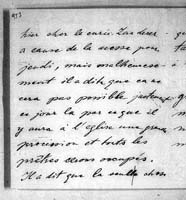 hier cher le curé
a cause de la messe pour
jeudi, mais malheureuse
ment il a dit que ca ne
cera pas posible
ces jour la par ce que il
y aura à l'eglise une
procession et touts les
prêtres serons ocupés.
Il a dit que la seulle chose